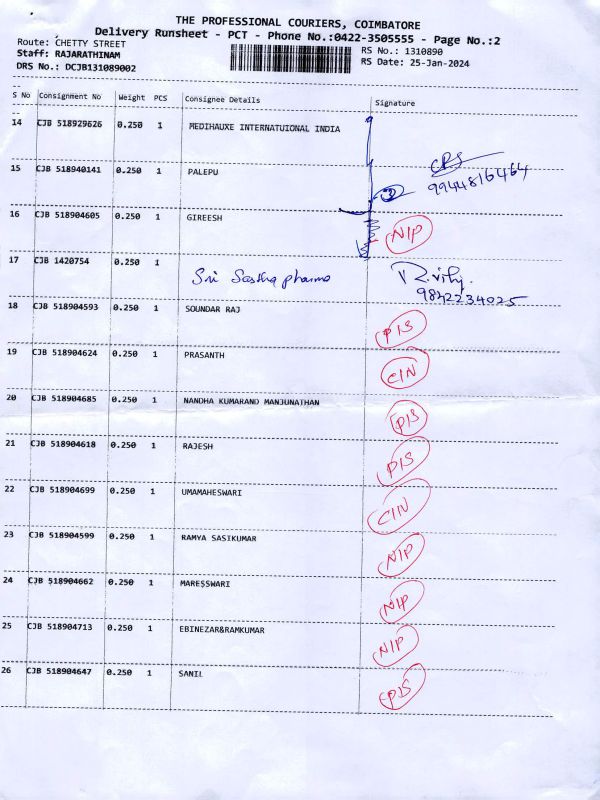 THE PROFESSIONAL COURIERS, COIMBATORE
Delivery Runsheet - PCT - Phone No.:0422-3505555 - Page No.:2
Route: CHETTY STREET RS No.: 1310890
Staff: RAJARATHINAM RS Date: 25-Jan-2024
DRS No.: DCJB131089002
S No Consignment No Weight PCS Consignee Details Signature
14 CJB 518929626 0.250 1 MEDIHAUXE INTERNATUIONAL INDIA
15 CJB 518940141 0.250 1 PALEPU
9944816464
3
16 CJB 518904605 0.250 1 GIREESH NIP
17 CJB 1420754 0.250 1 Sri Sastha pharma
9842234025
18 CJB 518904593 0.250 1 SOUNDAR RAJ PIS
19 CJB 518904624 0.250 1 PRASANTH CIN
20 CJB 518904685 0.250 1 NANDHA KUMARAND MANJUNATHAN PIS
21 CJB 518904618 0.250 1 RAJESH PIS
22 CJB 518904699 0.250 1 UMAMAHESWARI CIN
23 CJB 518904599 0.250 1 RAMYA SASIKUMAR NIP
24 CJB 518904662 0.250 1 MARESSWARI NIP
25 CJB 518904713 0.250 1 EBINEZAR&RAMKUMAR NIP
26 CJB 518904647 0.250 1 SANIL PIS